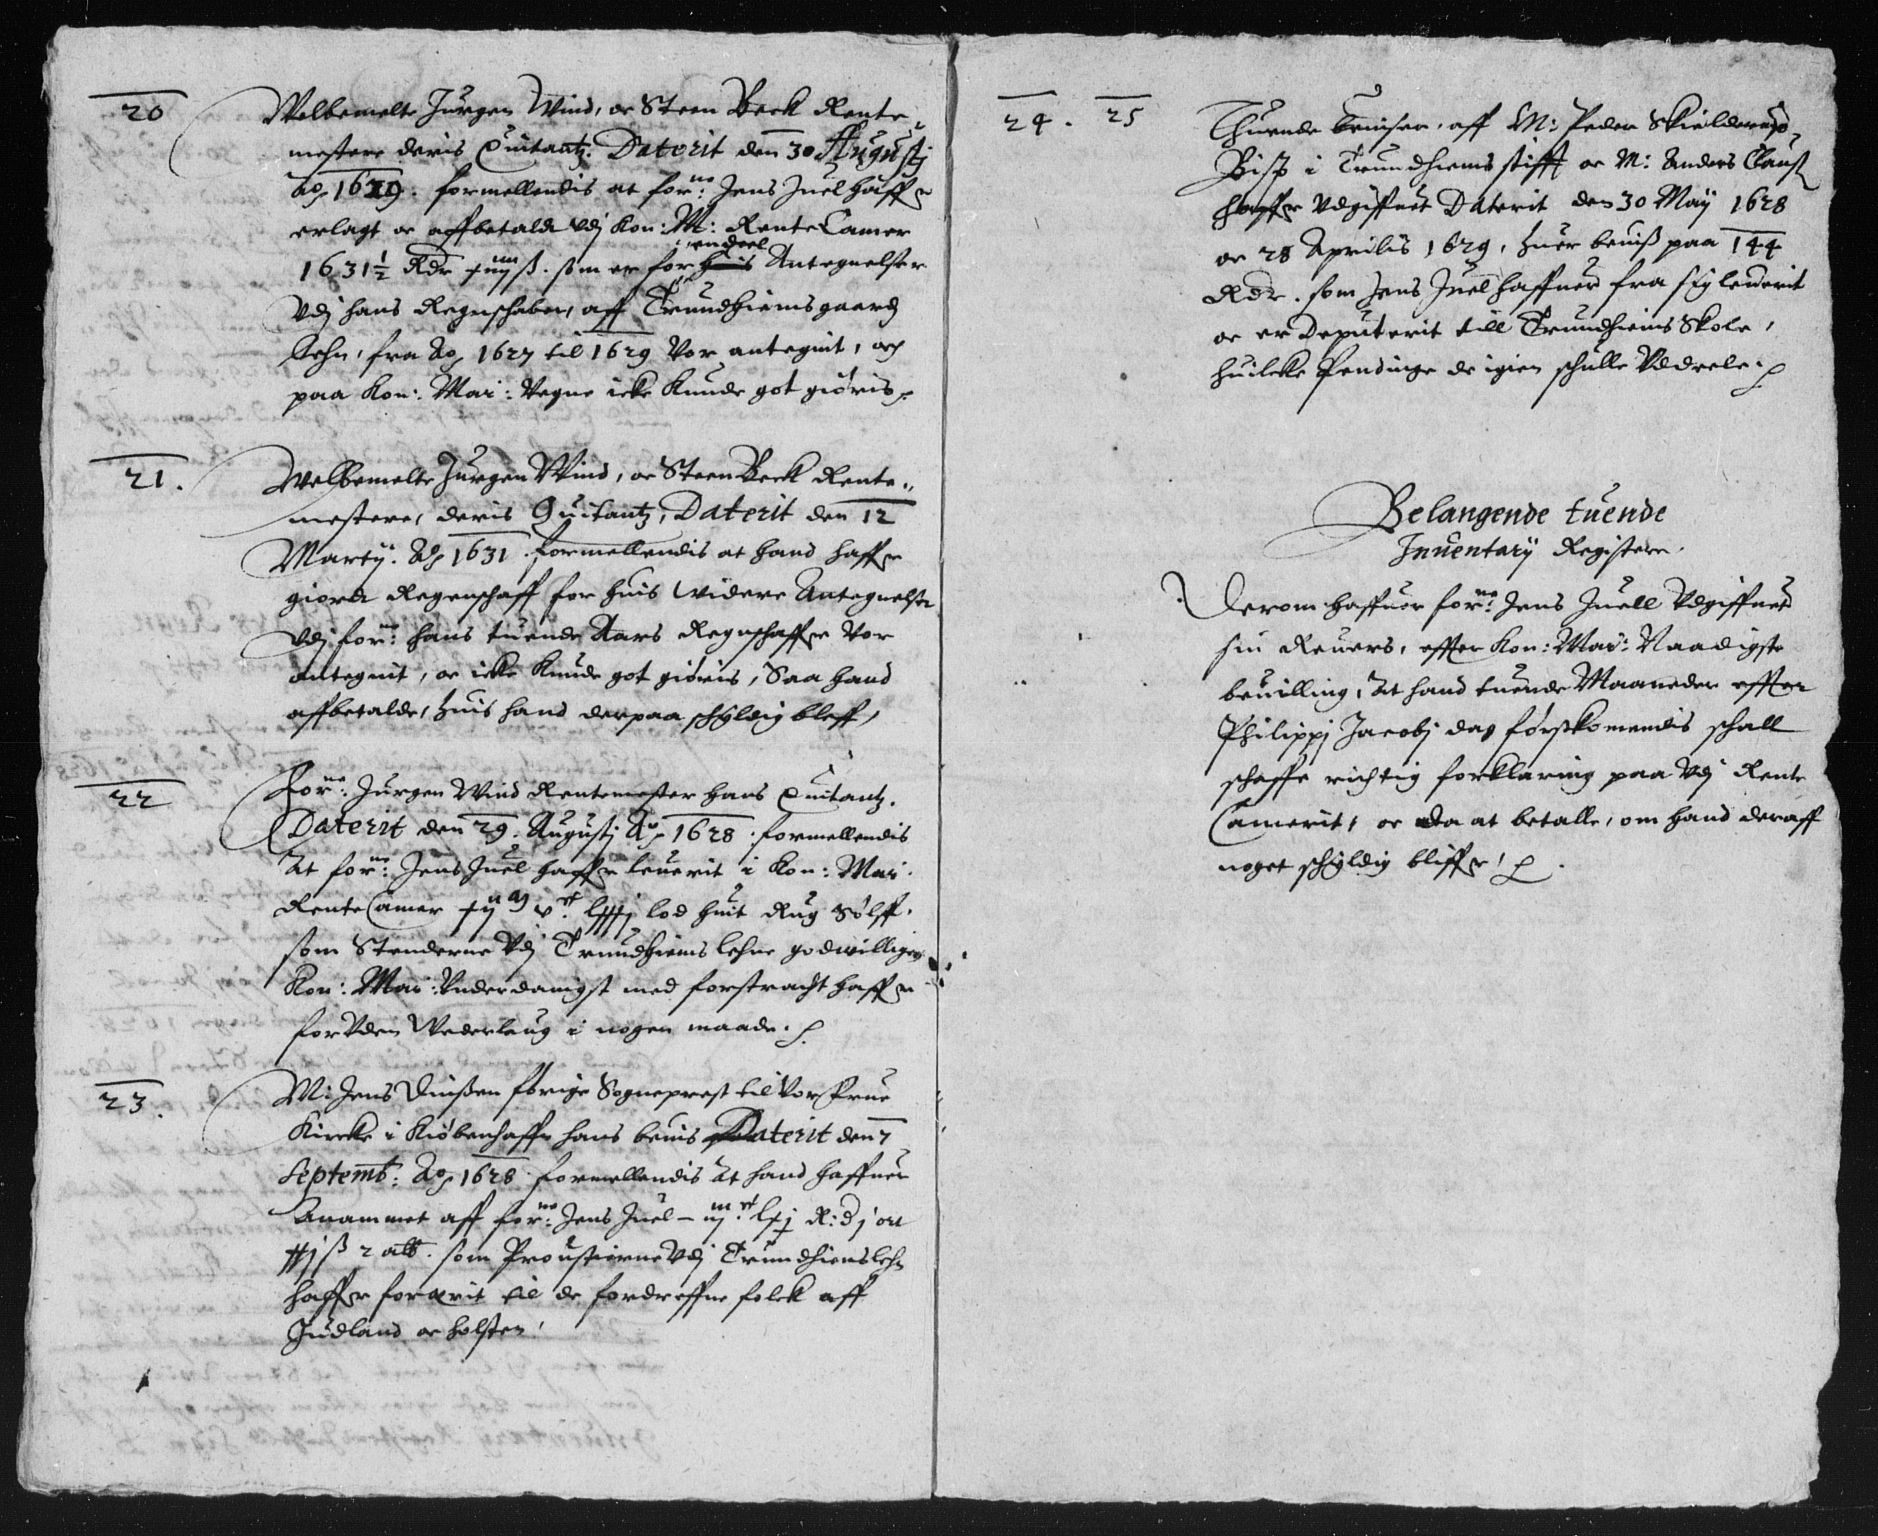 20
Welbemelte Jurgen Wind, oc Steen Beck Rente-
mestere deris Quitantz. Daterit den 30 Augustj
Ao 1629. formellendis at forne: Jens Juel haffr
erlagt oc affbetalt vdj Kon: M: Rente Camer
1631½ Rdr ß. som er for huis endeel Antegnelser
vdj hans Regnschaber, aff Trundhiems gaardz
Lehn, fra Ao 1627 til 1629 Vor antegnit, och
paa Kon: Mai: Vegne icke kunde got giøris.
21.
Welbemelte Jurgen Wind, oc Steen Beck Rente-
mestere, deris Quitantz, Daterit den 12
Martij. Ao 1631. formellendis at hand haffr
giordt Regenschaff for huis widere Antegnelser
vdj forne: hans tuende Aars Regnschaffr Vor
antegnit, oc icke kunde got giøris, Saa hand
affbetalde, huis hand derpaa schyldig bleff,
22
Forne: Jurgen Wind Rentemester hans Quitantz.
Daterit den 29. Augustj Ao 1628. formellendis
At forne: Jens Juel haffr leuerit i Kon: Mai:
Rente Camer lod huit Rug Sølff.
som Stenderne vdj Trundhiems lehne godwilligen
Kon: Mai: Vnderdanigst med forstracht haffr
forvden Wederlaug i nogen maade.
23.
M: Jens forige Sogneprest til Vor Frue
Kircke i Kiøbenhaffn hans beuis Daterit den 7
Septemb: Ao 1628. formellendis At hand haffuer
Anammet aff forne: Jens Juel R:d j ort
ß 2 alb. som Proustierne vdj Trundhiems lehn
haffr forærit til de fordreffne folck aff
Judland oc holsten.
24. 25
Thuende beuiser, aff M: Peder Skielderup
Bisp i Trundhiems stifft oc M: Anders Clauß
haffr vdgiffuet Daterit den 30 Maÿ 1628
oc 28 Aprilis 1629, huer beuiß paa 144
Rdr. som Jens Juel haffuer fra sig leuerit
oc er Deputerit till Trundhiems Skole,
huilcke Pendinge de igien schulle Vddeele.
Belangende tuende
Inuentarij Registere.
Derom haffuer forne: Jens Juell Vdgiffuet
sin Reuers, effter Kon: Mai: Naadigste
beuilling, At hand tuende Maaneder effter
Philippj Jacobj dag førstkomendis schall
schaffe richtig forklaring paa vdj Rente
Camerit, oc da at betalle, om hand deraff
noget schyldig bliffr,